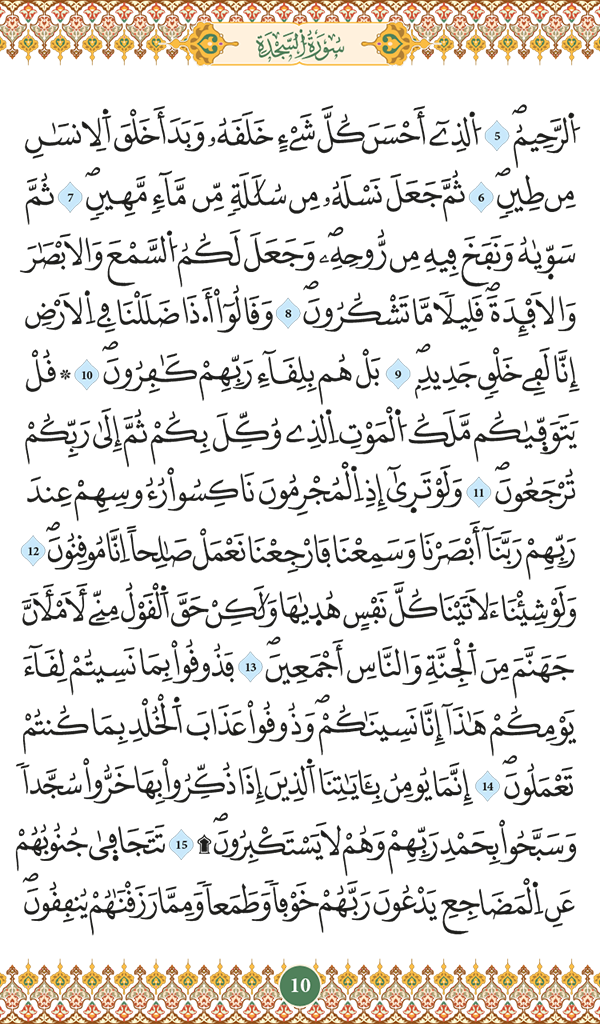 سُورَةُ السَّجْدَةِ
اَ۬لرَّحِيمُۖ 5 اُ۬لذِےٓ أَحْسَنَ كُلَّ شَےْءٍ خَلَقَهُۥ وَبَدَأَ خَلْقَ اَ۬لِانسَٰنِ
مِن طِينٖۖ 6 ثُمَّ جَعَلَ نَسْلَهُۥ مِن سُلَٰلَةٖ مِّن مَّآءٖ مَّهِينٖۖ 7 ثُمَّ
سَوّ۪يٰهُ وَنَفَخَ فِيهِ مِن رُّوحِهِۦۖ وَجَعَلَ لَكُمُ اُ۬لسَّمْعَ وَالَابْصَٰرَ
وَالَافْـِٕدَةَۖ قَلِيلاٗ مَّا تَشْكُرُونَۖ 8 وَقَالُوٓاْ أَ.ذَا ضَلَلْنَا فِے اِ۬لَارْضِ
إِنَّا لَفِے خَلْقٖ جَدِيدِۢۖ 9 بَلْ هُم بِلِقَآءِ رَبِّهِمْ كَٰفِرُونَۖ 10 ۞ قُلْ
يَتَوَفّ۪يٰكُم مَّلَكُ اُ۬لْمَوْتِ اِ۬لذِے وُكِّلَ بِكُمْ ثُمَّ إِلَىٰ رَبِّكُمْ
تُرْجَعُونَۖ 11 وَلَوْ تَر۪ىٰٓ إِذِ اِ۬لْمُجْرِمُونَ نَاكِسُواْ رُءُوسِهِمْ عِندَ
رَبِّهِمْ رَبَّنَآ أَبْصَرْنَا وَسَمِعْنَا فَارْجِعْنَا نَعْمَلْ صَٰلِحاً اِنَّا مُوقِنُونَۖ 12
وَلَوْ شِئْنَا ءَلَاتَيْنَا كُلَّ نَفْسٍ هُد۪يٰهَا وَلَٰكِنْ حَقَّ اَ۬لْقَوْلُ مِنِّے لَأَمْلَأَنَّ
جَهَنَّمَ مِنَ اَ۬لْجِنَّةِ وَالنَّاسِ أَجْمَعِينَۖ 13 فَذُوقُواْ بِمَا نَسِيتُمْ لِقَآءَ
يَوْمِكُمْ هَٰذَآ إِنَّا نَسِينَٰكُمْۖ وَذُوقُواْ عَذَابَ اَ۬لْخُلْدِ بِمَا كُنتُمْ
تَعْمَلُونَۖ 14 إِنَّمَا يُومِنُ بِـَٔايَٰتِنَا اَ۬لذِينَ إِذَا ذُكِّرُواْ بِهَا خَرُّواْ سُجَّداٗ
وَسَبَّحُواْ بِحَمْدِ رَبِّهِمْ وَهُمْ لَا يَسْتَكْبِرُونَۖ ۩ 15 تَتَجَاف۪ىٰ جُنُوبُهُمْ
عَنِ اِ۬لْمَضَاجِعِ يَدْعُونَ رَبَّهُمْ خَوْفاٗ وَطَمَعاٗ وَمِمَّا رَزَقْنَٰهُمْ يُنفِقُونَۖ
10